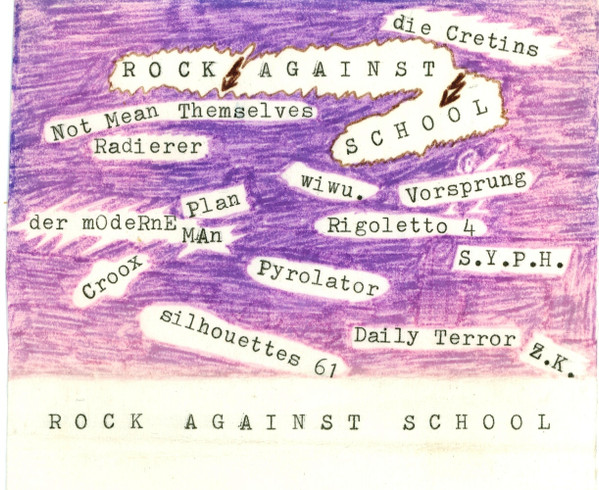 die Cretins
ROCK AGAINST
SCHOOL
Not Mean Themselves
Radierer
wiwu.
Vorsprung
Plan
der mOdeRnE
MAn
Rigoletto 4
S.Y.P.H.
Croox
Pyrolator
silhouettes 61
Daily Terror
Z.K.
ROCK AGAINST SCHOOL